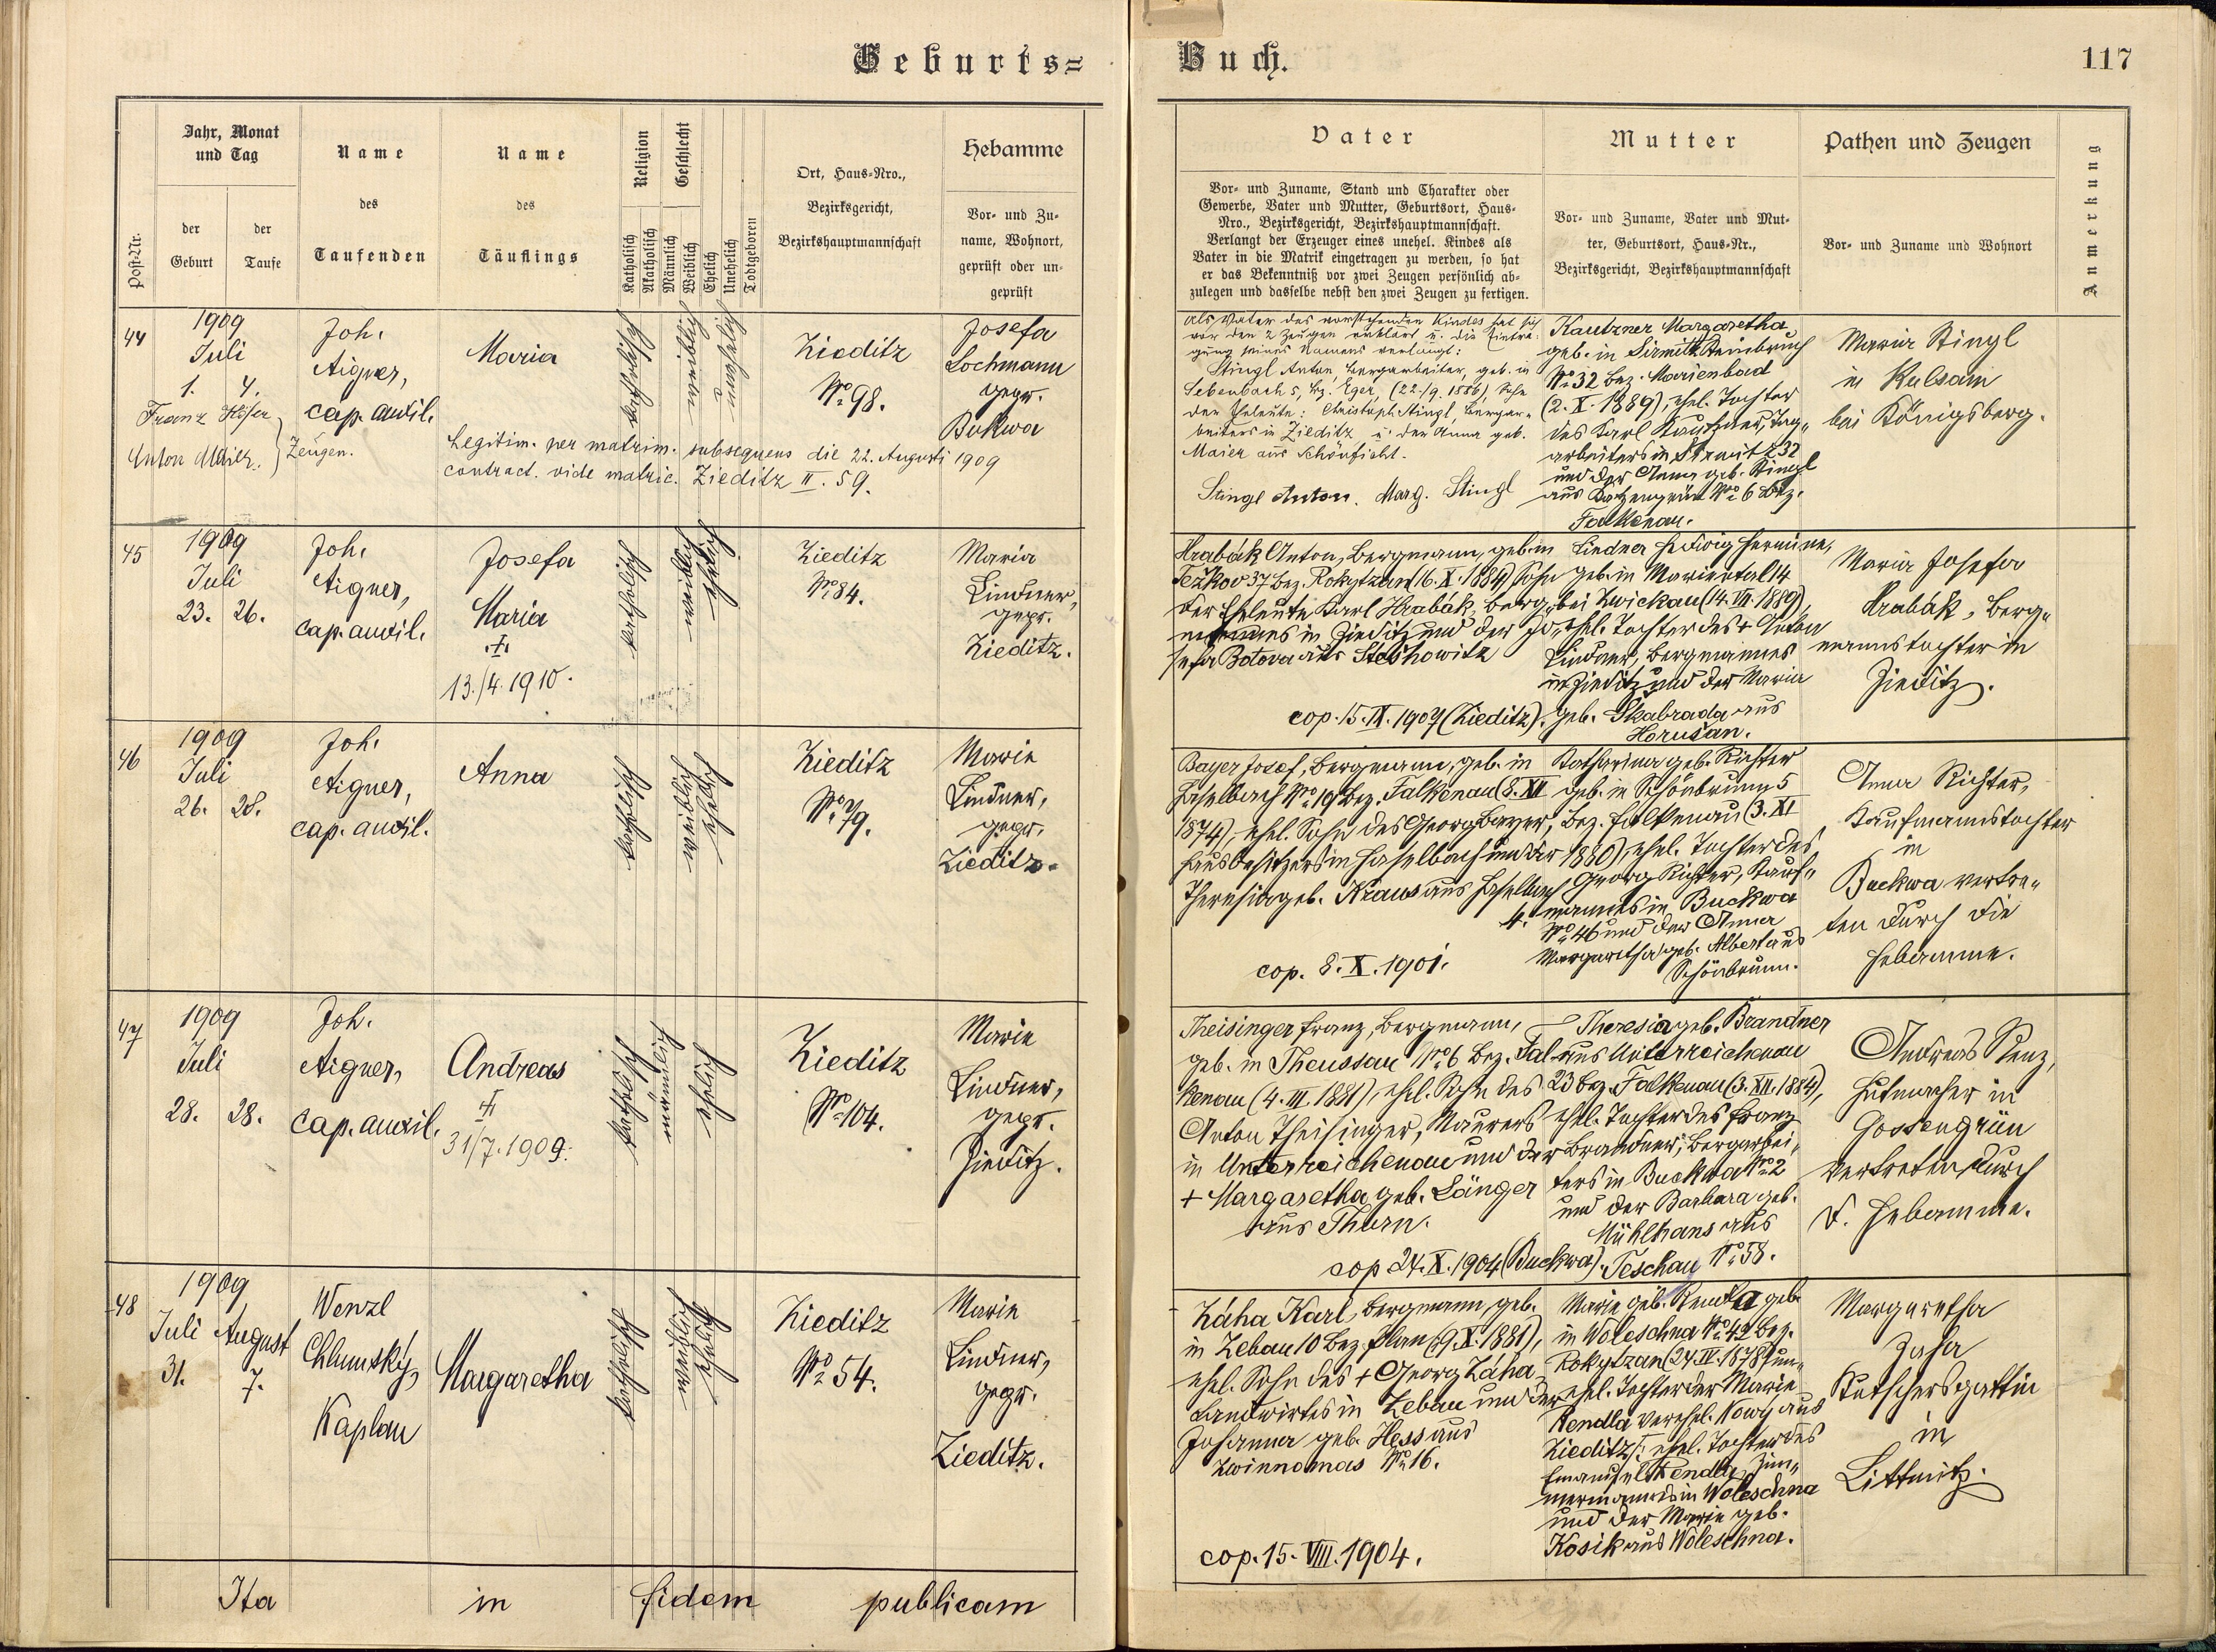 Geburts=
Buch.
117
Post-Nr.
Jahr, Monat
und Tag
der
Geburt
der
Taufe
Name
des
Taufenden
Name
des
Täuflings
Religion
Katholisch
Akatholisch
Geschlecht
Männlich
Weiblich
Ehelich
Unehelich
Todtgeboren
Ort, Haus-Nro.,
Bezirksgericht,
Bezirkshauptmannschaft
Hebamme
Vor- und Zu-
name, Wohnort,
geprüft oder un-
geprüft
Vater
Vor- und Zuname, Stand und Charakter oder
Gewerbe, Vater und Mutter, Geburtsort, Haus-
Nro., Bezirksgericht, Bezirkshauptmannschaft.
Verlangt der Erzeuger eines unehel. Kindes als
Vater in die Matrik eingetragen zu werden, so hat
er das Bekenntniß vor zwei Zeugen persönlich ab-
zulegen und dasselbe nebst den zwei Zeugen zu fertigen.
Mutter
Vor- und Zuname, Vater und Mut-
ter, Geburtsort, Haus-Nr.,
Bezirksgericht, Bezirkshauptmannschaft
Pathen und Zeugen
Vor- und Zuname und Wohnort
Anmerkung
44
1909
Juli
1. 4.
Joh.
Aigner,
cap. auxil.
Maria
katholisch
weiblich
unehelich
Zieditz
No 98.
Josefa
Lochmann
gepr.
Bukwa
Franz
Anton Maier.
Zeugen.
Legitim. per matrim. subsequens die 22. Augusti 1909
contract. vide matric. Zieditz II. 59.
Als Vater des vorstehenden Kindes hat sich
vor den 2 Zeugen erklärt u. die Eintra-
gung seines Namens verlangt:
Stingl Anton, Bergarbeiter, geb. in
Lebenbach 5, Bz. Eger, (22./9. 1886), Sohn
der Eheleute: Christoph Stingl, Bergar-
beiters in Zieditz u. der Anna geb.
Maier aus Schönficht.
Stingl Anton. Marg. Stingl
Kautzner Margaretha
geb. in
No 32 Bez. Marienbad
(2. X. 1889), ehel. Tochter
des Karl Kautzner, Tag-
arbeiters in 32
und der Anna geb. Stingl
aus Katzengrün No 6 Bez.
Falkenau.
Maria Stingl
in Kulsam
bei Königsberg.
45
1909
Juli
23. 26.
Joh.
Aigner,
cap. auxil.
Josefa
Maria
+
13./4. 1910.
katholisch
weiblich
ehelich
Zieditz
No 84.
Maria
Lindner,
gepr.
Zieditz.
Hrabák Anton, Bergmann, geb. in
Težkov 37 Bez. Rokytzan (16. X. 1884) Sohn
der Eheleute Karl Hrabák, Berg-
mannes in Zieditz und der Jo-
sefa Botova aus Steshowitz
cop. 15. IX. 1907 (Zieditz).
Lindner Hedwig Hermine,
geb. in Mariental 14
bei Zwickau (14. VII. 1889),
ehel. Tochter des + Anton
Lindner, Bergmannes
in Zieditz und der Maria
geb. Skabrada aus
Horušan.
Maria Josefa
Hrabák, Berg-
mannstochter in
Zieditz.
46
1909
Juli
26. 28.
Joh.
Aigner,
cap. auxil.
Anna
katholisch
weiblich
ehelich
Zieditz
No 79.
Marie
Lindner,
gepr.
Zieditz.
Bayer Josef, Bergmann, geb. in
Haselbach No 19 Bez. Falkenau (8. XII
1874), ehel. Sohn des Georg Bayer,
Hausbesitzers in Haselbach und der
Theresia geb. Kraus aus Haselbach
4.
cop. 8. X. 1901.
Katharina geb. Richter
geb. in Schönbrunn 5
Bez. Falkenau (3. XI
1880), ehel. Tochter des
Georg Richter, Kauf-
mannes in Buckwa
No 46 und der Anna
Margaretha geb. Albert aus
Schönbrunn.
Anna Richter,
Kaufmannstochter
in
Buckwa vertre-
ten durch die
Hebamme.
47
1909
Juli
28. 28.
Joh.
Aigner,
cap. auxil.
Andreas
+
31/7. 1909.
katholisch
männlich
ehelich
Zieditz
No 104.
Marie
Lindner,
gepr.
Zieditz.
Theisinger Franz, Bergmann,
geb. in Theussau No 6 Bez. Fal-
kenau (4. III. 1881), ehel. Sohn des
Anton Theisinger, Maurers
in Unterreichenau und der
+ Margaretha geb. Länger
aus Thurn.
cop 24. X. 1904 (Buckwa).
Theresia geb. Brandner
aus Unterreichenau
23 Bez. Falkenau (3. XII. 1884),
ehel. Tochter des Franz
Brandner, Bergarbei-
ters in Buckwa No 2
und der Barbara geb.
Mühlhans aus
Teschau No 58.
Andreas Lenz,
Hutmacher in
Gossengrün
vertreten durch
d. Hebamme.
48
1909
Juli August
31. 7.
Wenzl
Chlumský,
Kaplan
Margaretha
katholisch
weiblich
ehelich
Zieditz
No 54.
Marie
Lindner,
gepr.
Zieditz.
Záha Karl, Bergmann, geb.
in Zebau 10 Bez. Plan (9. X. 1881),
ehel. Sohn des + Georg Záha
Landwirtes in Zebau und der
Johanna geb. Hess aus
Zwinnomas No 16.
cop. 15. VIII. 1904.
Marie geb. Rendla geb.
in Woleschna No 42 Bez.
Rokytzan (24. IV. 1878) un-
ehel. Tochter der Marie
Rendla verehel. Nowy aus
Zieditz, ehel. Tochter des
Emanuel Rendla, Zim-
mermannes in Woleschna
und der Marie geb.
Kosik aus Woleschna.
Margaretha
Zaha
Kutschersgattin
in
Littmitz.
Ita in fidem publicam